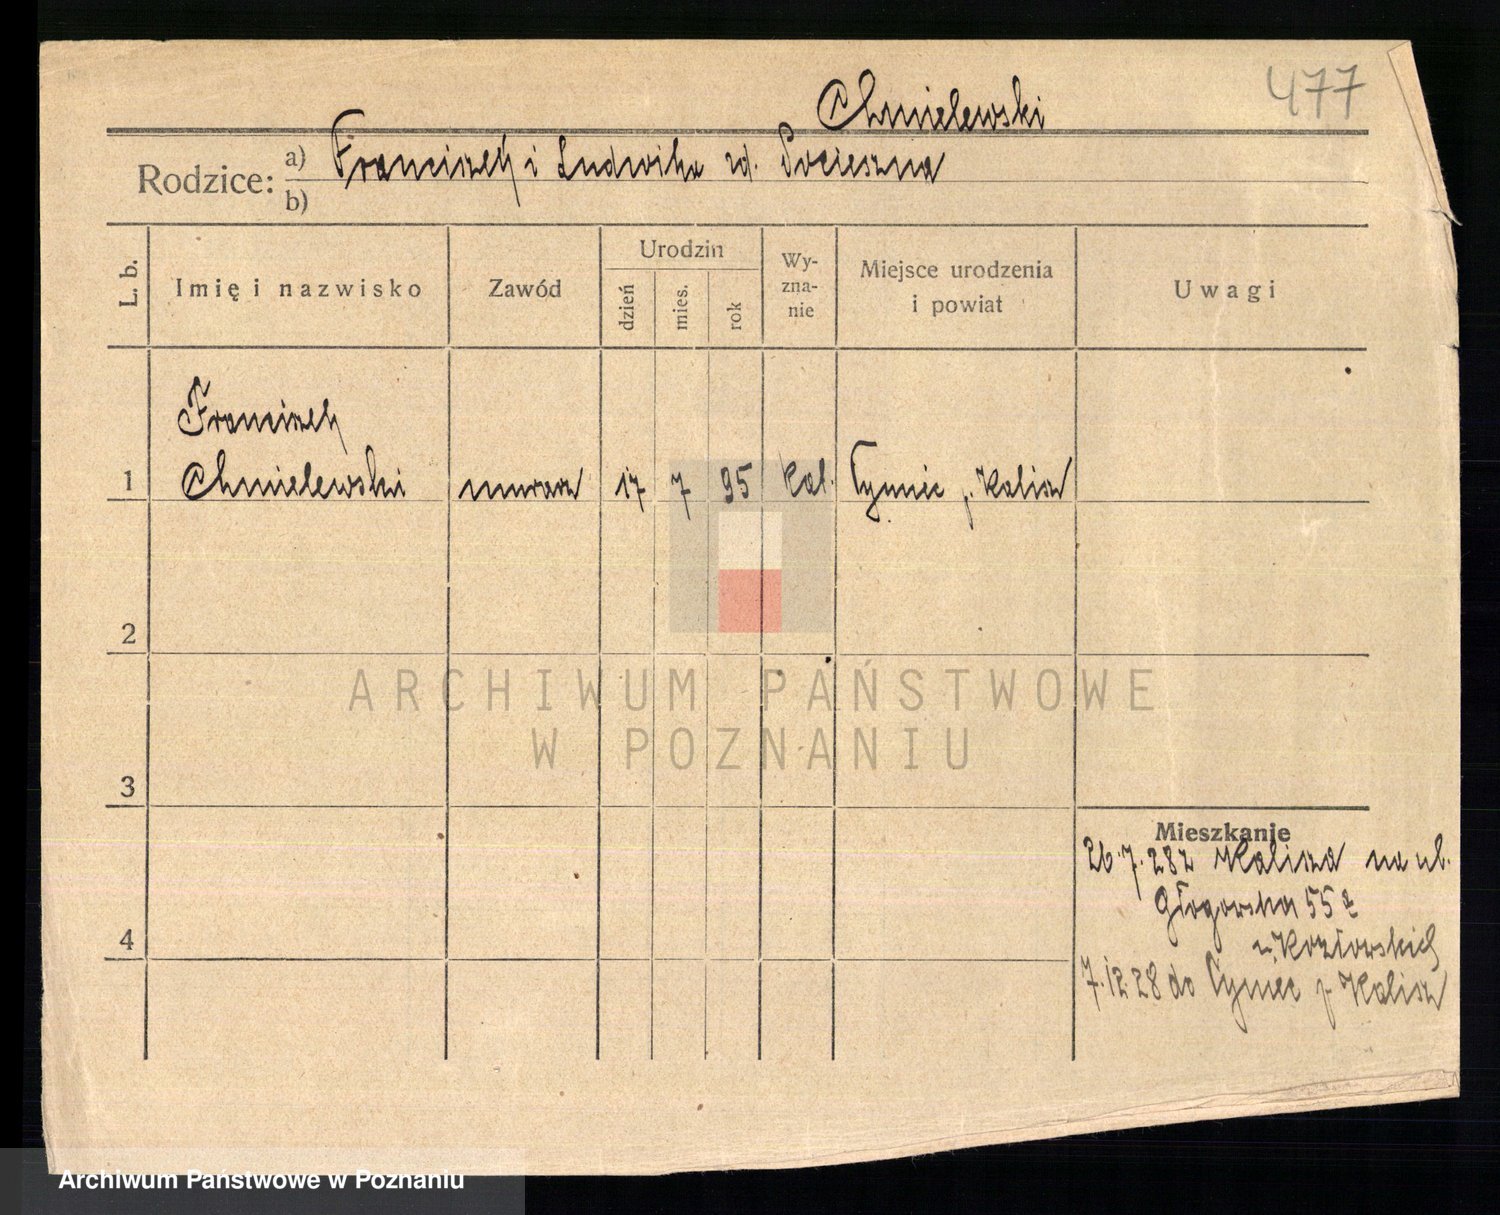 477
Chmielewski
Rodzice: a) Franciszek i Ludwika zd. Pocieszna
b)
L. b.
Imię i nazwisko
Zawód
Urodzin
dzień
mies.
rok
Wy-
zna-
nie
Miejsce urodzenia
i powiat
Uwagi
Franciszek
1 Chmielewski murarz 17 7 95 kat. Tyniec p. Kalisz
2
3
4
Mieszkanie
26.7.28 z Kalisza na ul.
Głogowska 55a
u. Kozłowskich
7.12.28 do Tyniec p. Kalisz
ARCHIWUM PAŃSTWOWE
W POZNANIU
Archiwum Państwowe w Poznaniu